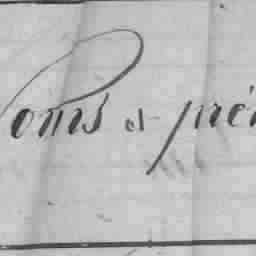 Noms et pré